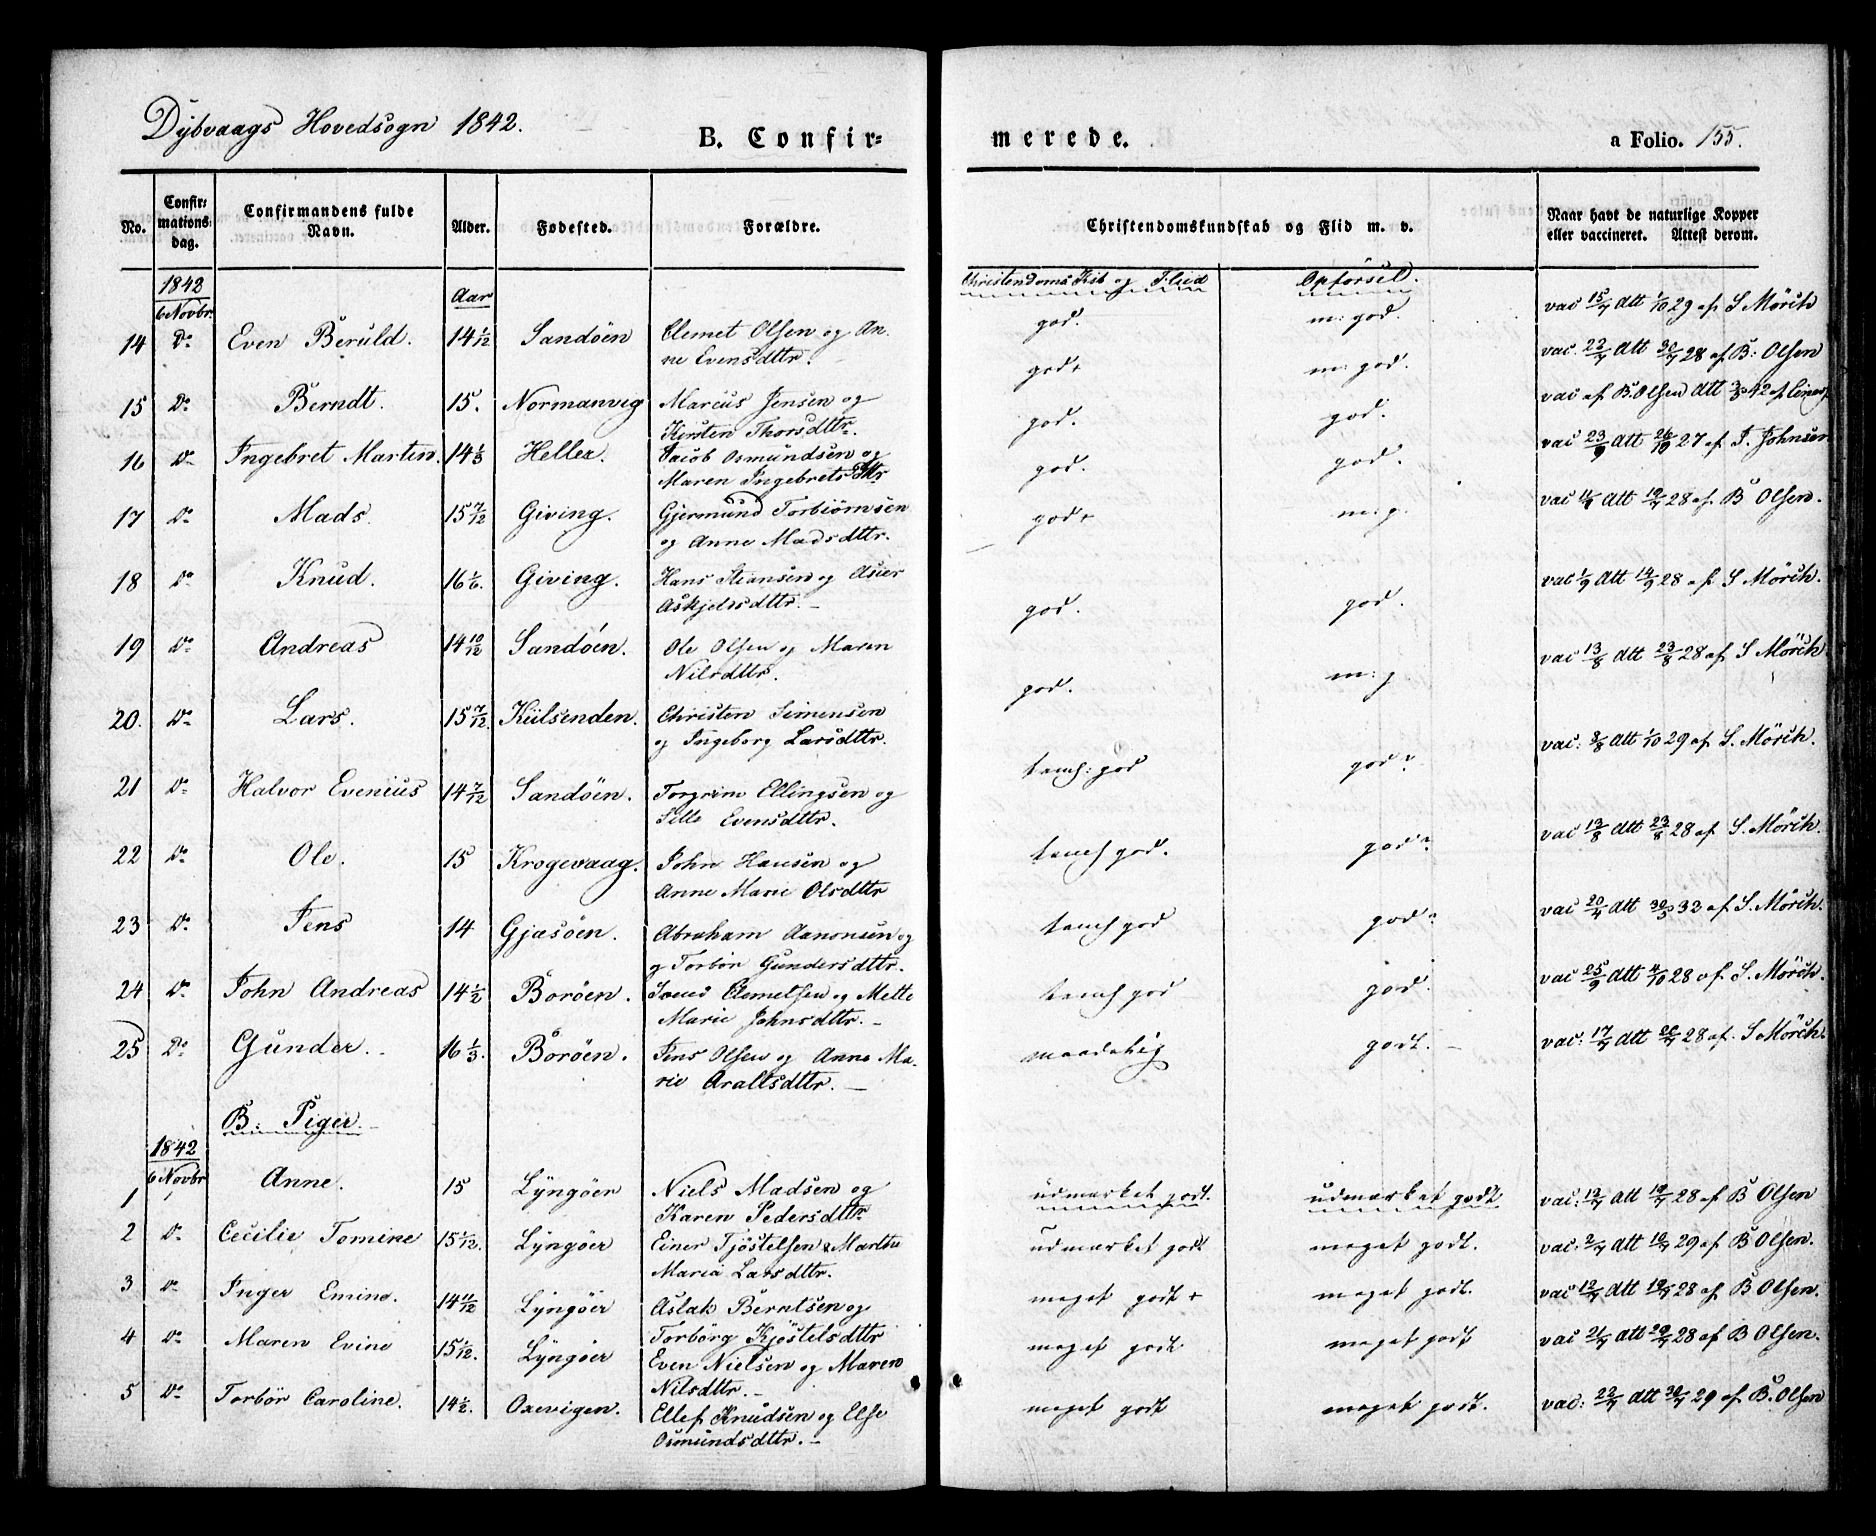 Dybvaags Hovedsogn 1842.
B. Confir=
merede.
a Folio. 155.
No. Confir=mations=dag. Confirmandens fulde Navn. Alder. Fødested. Forældre. Christendomskundskab og Flid m. v. Naar havt de naturlige Kopper eller vaccineret. Attest derom.
1842 Aar Christendoms Ksb og Fliid Opførsel.
6 Novbr.
14 Do Even Beruld. 14 1/12 Sandøen Clemet Olsen og An-
ne Evensdttr. god. m: god. vac 15/7 Att 1/10 29 af S Mörch
15 Do Berndt. 15. Normanvig Marcus Jensen og
Kirsten Thorsdttr. god+ m: god. vac. 23/7 Att 30/7 28 af B: Olsen
16 Do Ingebret Martin. 14 1/3 Hellea. Jacob Osmundsen og
Maren Ingebretsdttr god. god. vac af B. Olsen Att 42 af
17 Do Mads. 15 7/12 Giving. Gjermund Torbiörnsen
og Anne Madsdttr. god. god. vac 23/9 Att 26/10 27 af J. Johnsen
18 Do Knud. 16 1/6 Giving. Hans Steansen og Aser
Askjelsdttr. god+ m: g. vac Att 19/7 28 af B Olsen.
19 Do Andreas 14 10/12 Sandöen. Ole Olsen og Maren
Nilsdttr. god. god. vac 1/9 Att 14/9 28 af S Mörch.
20. Do Lars. 15 7/12. Küilsenden. Christen Simensen
og Ingeborg Larsdttr. god. m: g vac 13/8 Att 23/8 28 af S Mörch
21 Do Halvor Evenius 14 7/12 Sandöen. Torgrim Ellingsen og
Sille Evensdttr. temg: god god? vac: 8/8 Att 1/10 29 af S. Mörch.
22 Do Ole. 15 Krogevaag. John Hansen og
Anne Marie Olsdttr temg god. god? vac 13/8 Att 23/8 28 af S. Mörch.
23 Do Jens 14 Gjæsöen. Abraham Aanonsen og
og Torbör Gundersdttr. temg god god? vac 20/4 Att 30/5 32 af S. Mörch.
24 Do John Andreas 14 1/2 Boröen. Svend Clemetsen og Mette
Marie Johnsdttr. temg god god. vac 25/9 Att 4/10 28 af S. Mörch.
25 Do Gunder. 16 1/3. Boröen. Jens Olsen og Anne Ma-
rie Araltsdttr. maadelig godt. vac: 17/7 Att 26/7 28 af. S. Mörch.
B: Piger.
1842
6 Novbr
1 Anne. 15 Lyngöer Niels Madsen og
Karen Pedersdttr udmærket godt. udmærket godt vac: 12/7 Att 19/7 28 af B Olsen
2 Do Cecilie Tomine 15 1/12. Lyngöer Einer Tjöstelsen & Marthe
Maria Larsdttr. udmærket godt meget godt. vac: 2/7 Att 10/7 29 af B Olsen.
3 Do Inger Emine. 14 11/12 Lyngöer Aslak Berntsen og
Torborg Kjöstelsdttr meget godt + meget godt. vac 12/7 Att 19/7 28 af B Olsen.
4 Do Maren Evine 15 1/12. Lyngöer Even Nielsen og Maren
Nilsdttr. meget godt meget godt vac 21/7 Att 29/7 28 af B Olsen.
5 Do Torbör Caroline. 14 1/2. Oxevigen. Ellef Knudsen og Else
Osmundsdttr. meget godt meget godt. vac: 22/7 Att 30/7 29 af B. Olsen